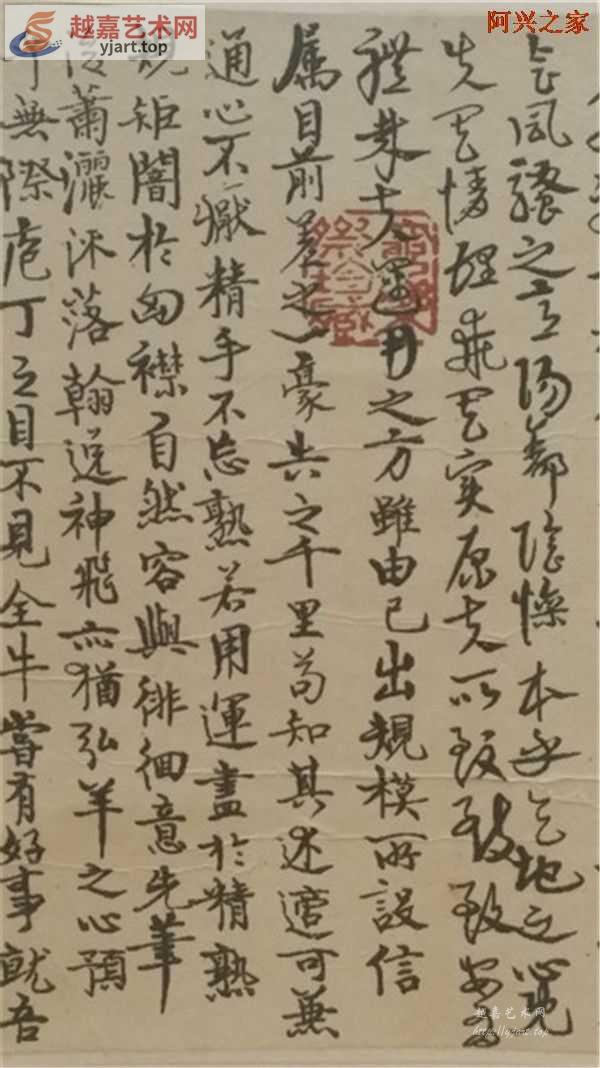 越嘉艺术网
yjart.top
阿兴之家
會風騷之意陽舒陰慘本乎天地之心既
失其情理乖其實原夫所致致致安有
體哉夫運用之方雖由己出規模所設信
属目前差之一豪失之千里苟知其述適可兼
通心不厭精手不忘熟若用運盡於精熟
規矩闇於匈襟自然容與徘徊意先筆
後蕭灑流落翰逸神飛亦猶弘羊之心預
乎無際庖丁之目不見全牛嘗有好事就吾
越嘉艺术网
http://yjart.top